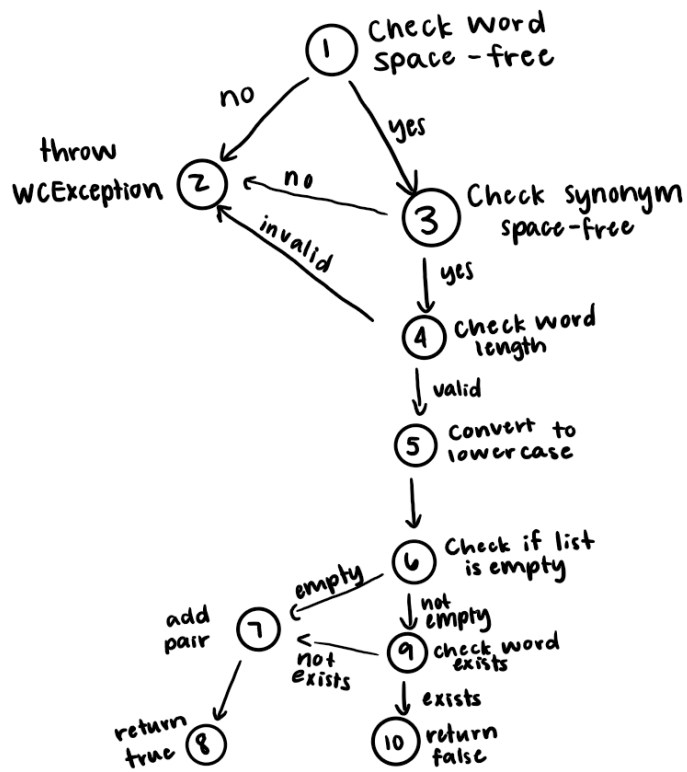 1
Check word
space-free
no
yes
throw
WCException
2
no
3
Check synonym
space-free
invalid
yes
4
Check word
length
valid
5
Convert to
lowercase
6
Check if list
is empty
empty
not
empty
add
pair
7
not
exists
9
check word
exists
exists
return
true
8
10
return
false